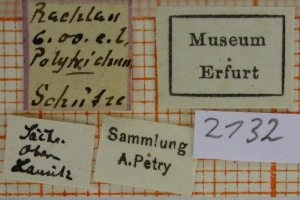 Rachlau
6.00.e.l.
Polytrichum
Schütze
Museum
Erfurt
Sächs.
Ober
Lausitz
Sammlung
A. Petry
2132